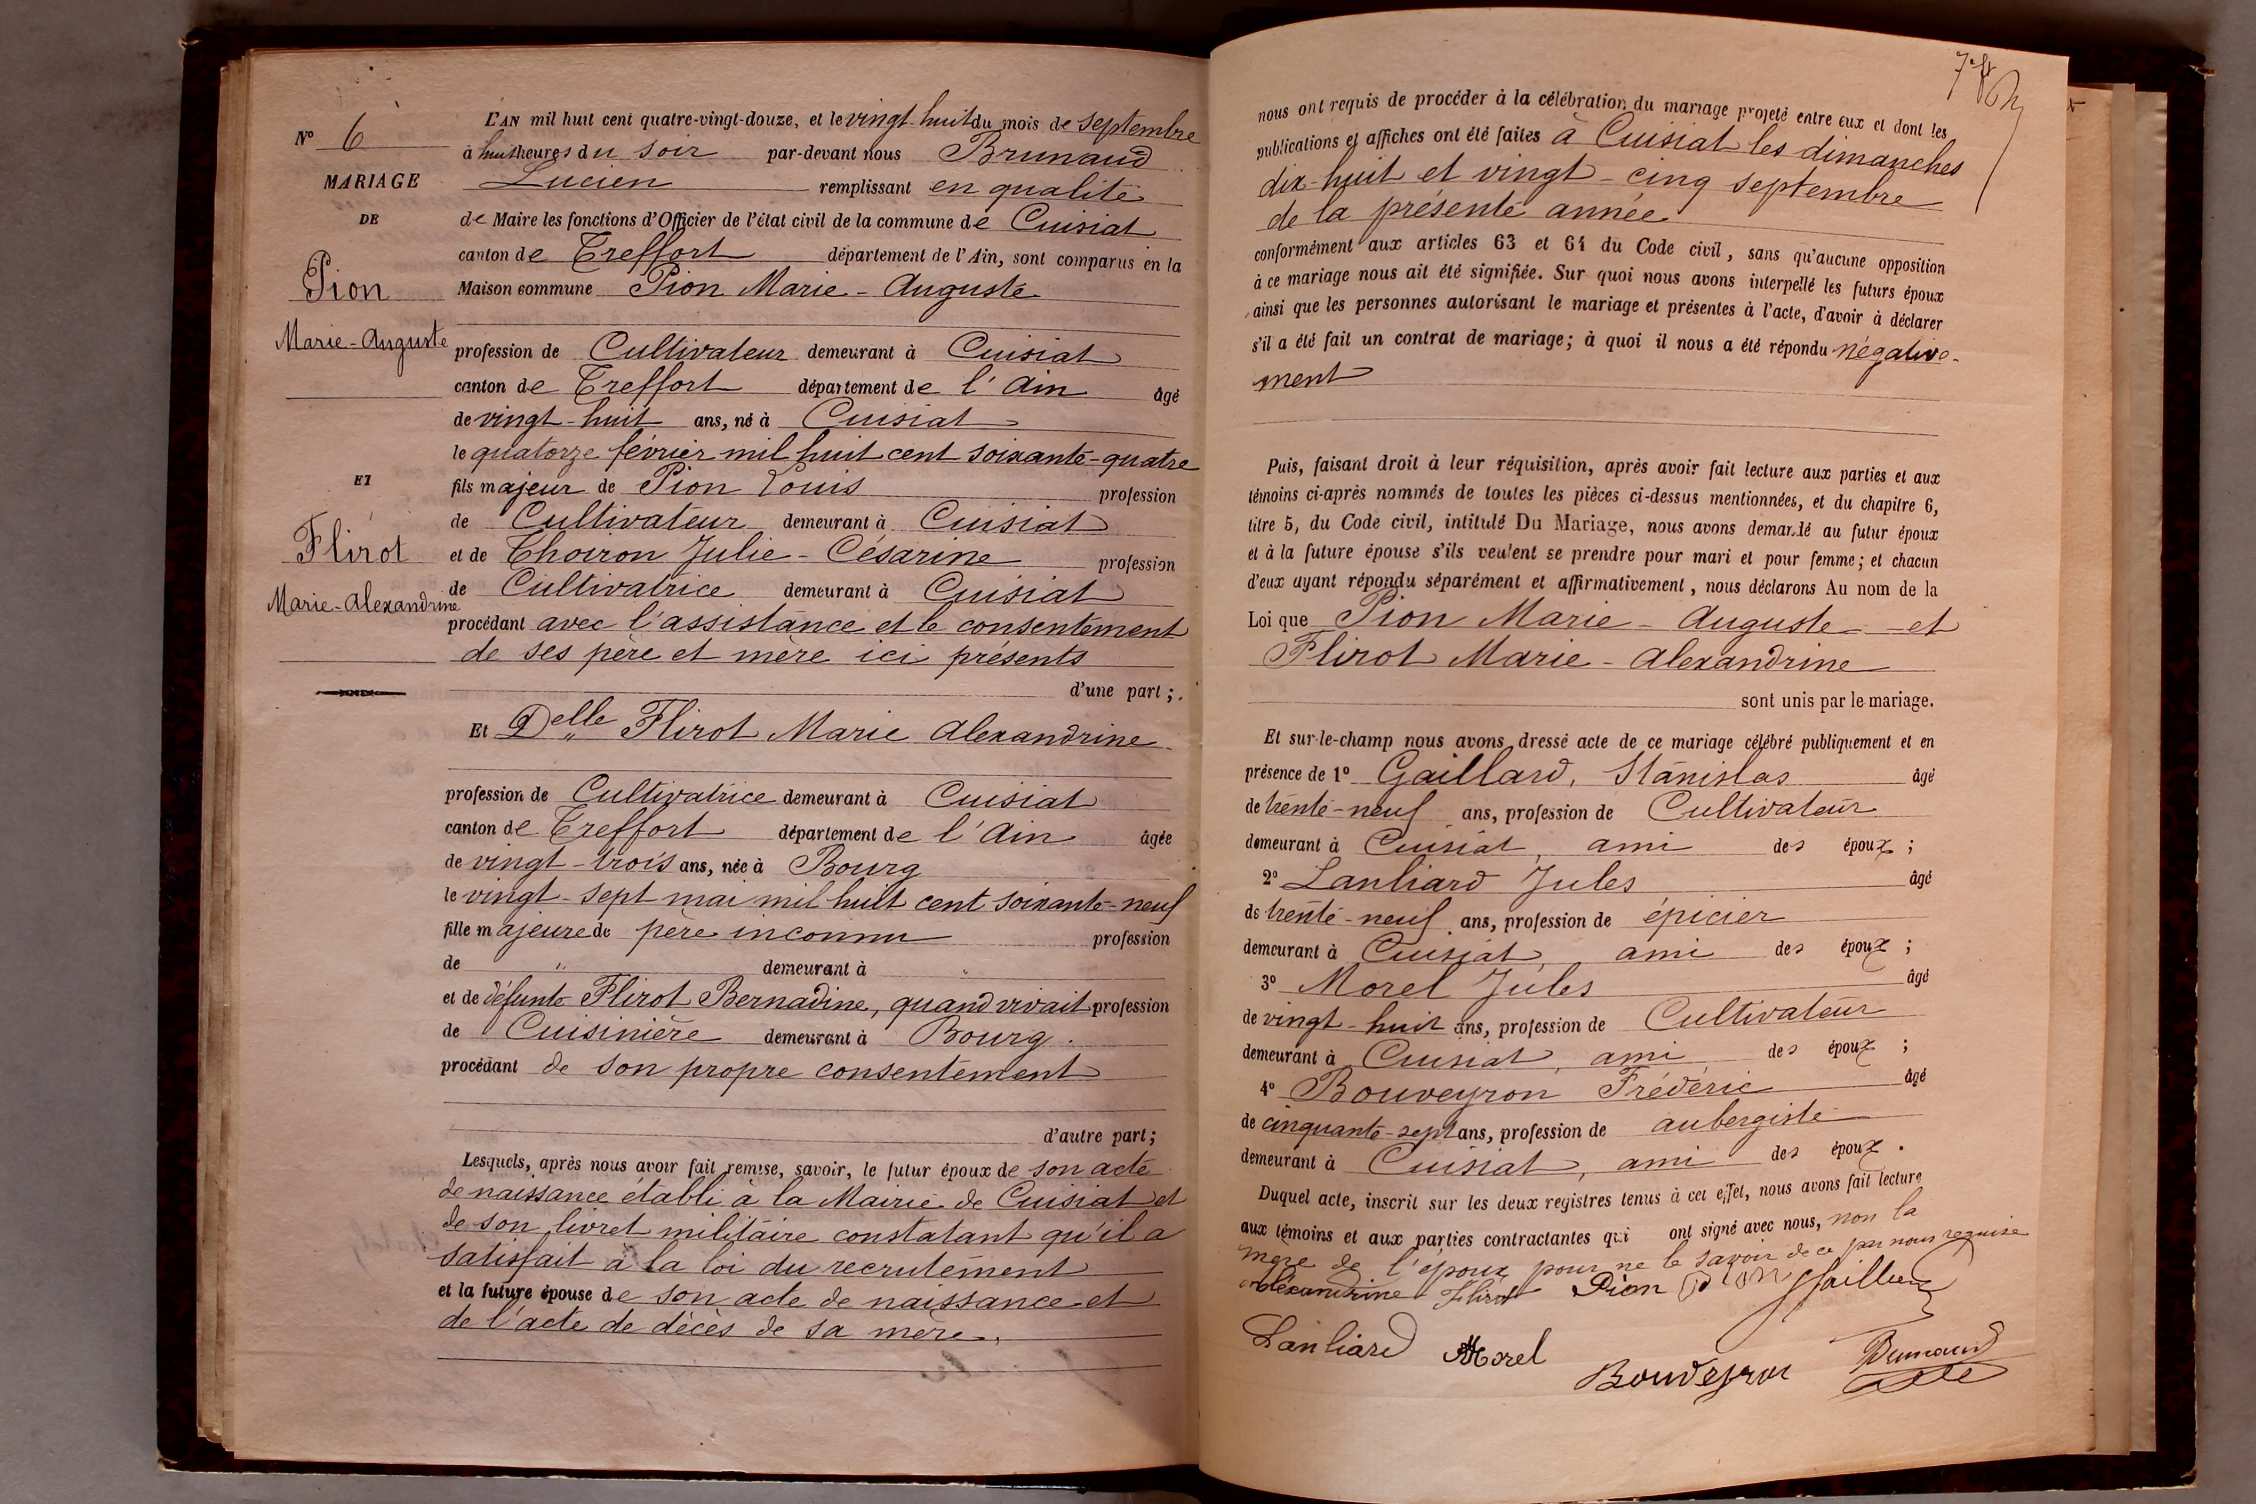 N° 6
MARIAGE
DE
Pion
Marie-Auguste
ET
Flirot
Marie-Alexandrine
L'AN mil huit cent quatre-vingt-douze, et le vingt-huit du mois de septembre
à huit heures du soir par-devant nous Brunaud
Lucien remplissant en qualité
de Maire les fonctions d'Officier de l'état civil de la commune de Cuisiat
canton de Treffort département de l'Ain, sont comparus en la
Maison commune Pion Marie-Auguste
profession de Cultivateur demeurant à Cuisiat
canton de Treffort département de l'Ain âgé
de vingt-huit ans, né à Cuisiat
le quatorze février mil huit cent soixante-quatre
fils majeur de Pion Louis profession
de Cultivateur demeurant à Cuisiat
et de Thoiron Julie-Césarine profession
de Cultivatrice demeurant à Cuisiat
procédant avec l'assistance et le consentement
de ses père et mère ici présents
d'une part ;
Et Delle Flirot Marie Alexandrine
profession de Cultivatrice demeurant à Cuisiat
canton de Treffort département de l'Ain âgée
de vingt-trois ans, née à Bourg
le vingt-sept mai mil huit cent soixante-neuf
fille majeure de père inconnu profession
de " demeurant à "
et de défunte Flirot Bernadine, quand vivait profession
de Cuisinière demeurant à Bourg.
procédant de son propre consentement
d'autre part ;
Lesquels, après nous avoir fait remise, savoir, le futur époux de son acte
de naissance établi à la Mairie de Cuisiat et
de son livret militaire constatant qu'il a
satisfait à la loi du recrutement
et la future épouse de son acte de naissance et
de l'acte de décès de sa mère.
nous ont requis de procéder à la célébration du mariage projeté entre eux et dont les
publications et affiches ont été faites à Cuisiat les dimanches
dix-huit et vingt-cinq septembre
de la présente année
conformément aux articles 63 et 64 du Code civil, sans qu'aucune opposition
à ce mariage nous ait été signifiée. Sur quoi nous avons interpellé les futurs époux
ainsi que les personnes autorisant le mariage et présentes à l'acte, d'avoir à déclarer
s'il a été fait un contrat de mariage ; à quoi il nous a été répondu négative-
ment
Puis, faisant droit à leur réquisition, après avoir fait lecture aux parties et aux
témoins ci-après nommés de toutes les pièces ci-dessus mentionnées, et du chapitre 6,
titre 5, du Code civil, intitulé Du Mariage, nous avons demandé au futur époux
et à la future épouse s'ils veulent se prendre pour mari et pour femme ; et chacun
d'eux ayant répondu séparément et affirmativement, nous déclarons Au nom de la
Loi que Pion Marie-Auguste et
Flirot Marie-Alexandrine
sont unis par le mariage.
Et sur-le-champ nous avons dressé acte de ce mariage célébré publiquement et en
présence de 1° Gaillard, Stanislas âgé
de trente-neuf ans, profession de Cultivateur
demeurant à Cuisiat, ami des époux ;
2° Lanliard Jules âgé
de trente-neuf ans, profession de épicier
demeurant à Cuisiat, ami des époux ;
3° Morel Jules âgé
de vingt-huit ans, profession de Cultivateur
demeurant à Cuisiat, ami des époux ;
4° Bouveyron Frédéric âgé
de cinquante-sept ans, profession de aubergiste
demeurant à Cuisiat, ami des époux.
Duquel acte, inscrit sur les deux registres tenus à cet effet, nous avons fait lecture
aux témoins et aux parties contractantes qui ont signé avec nous, non la
mère de l'époux pour ne le savoir de ce par nous requise
Alexandrine Flirot Pion Pion
Lanliard Morel Bouveyron Brunaud